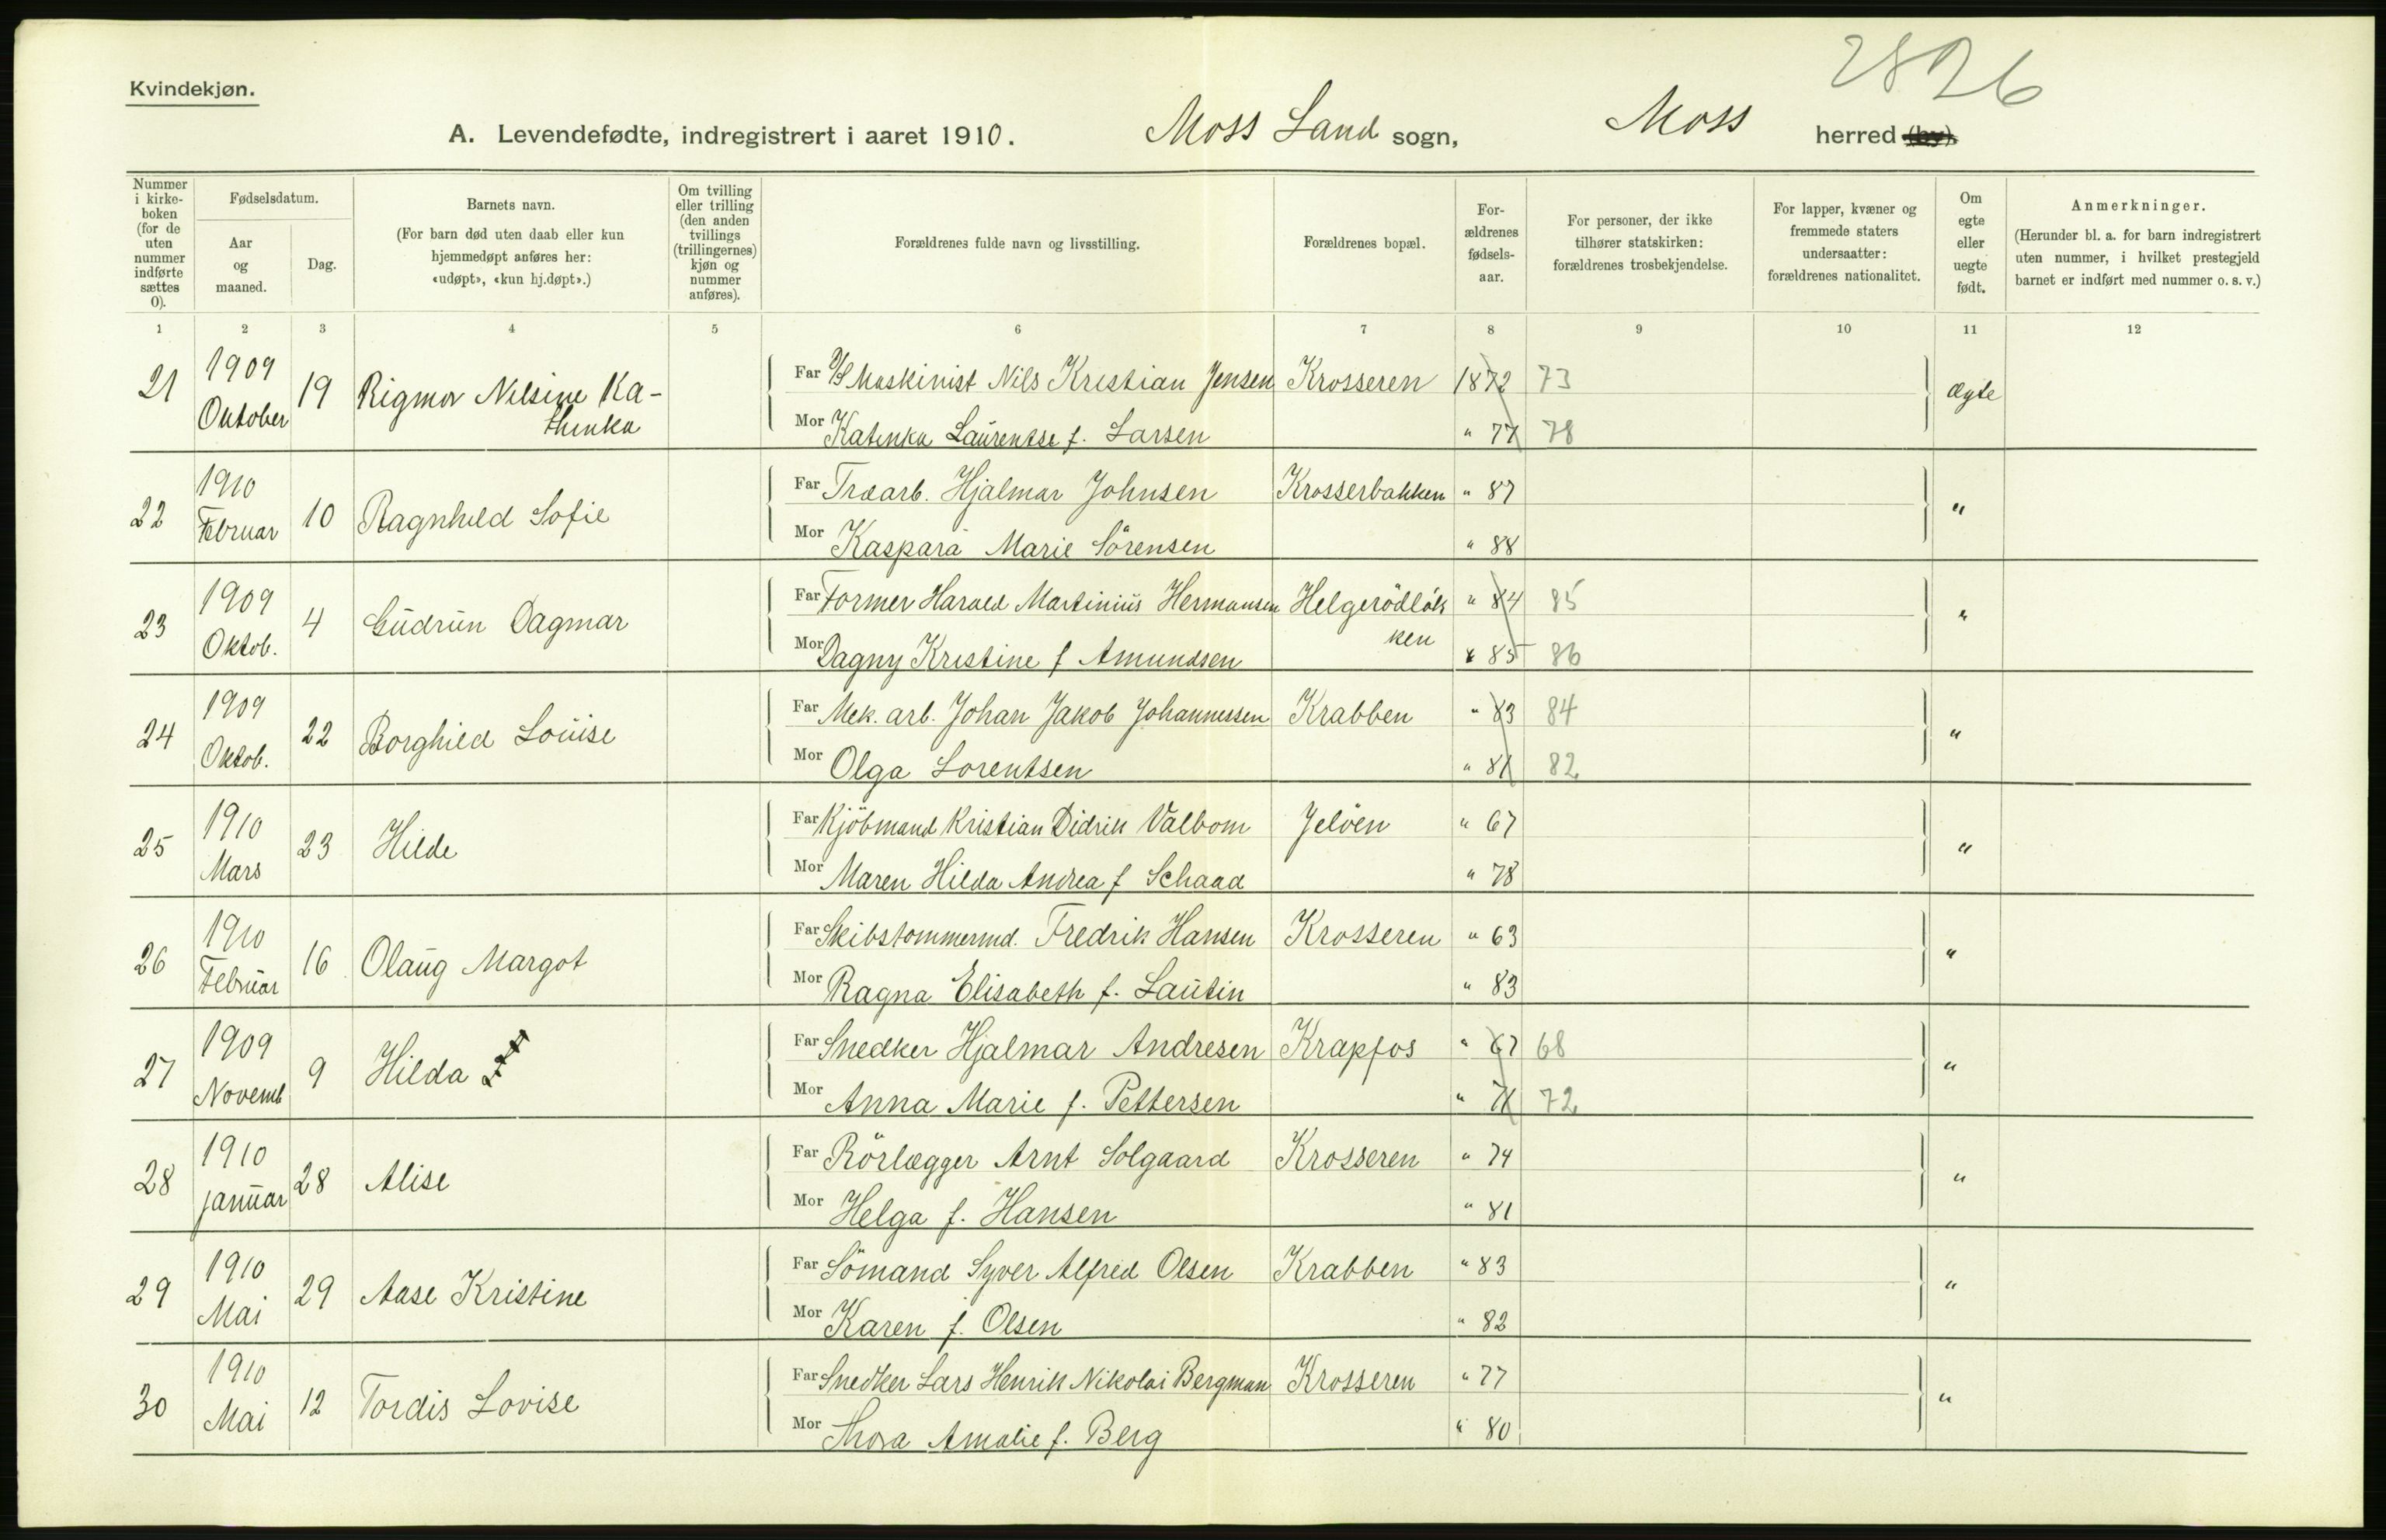 2826
Kvindekjøn.
A. Levendefødte, indregistrert i aaret 1910. Moss Land sogn, Moss herred (by).
Nummer i kirke-boken (for de uten nummer indførte sættes 0).
Fødselsdatum.
Aar og maaned.
Dag.
Barnets navn.
(For barn død uten daab eller kun hjemmedøpt anføres her: «udøpt», «kun hj.døpt».)
Om tvilling eller trilling (den anden tvillings (trillingernes) kjøn og nummer anføres).
Forældrenes fulde navn og livsstilling.
Forældrenes bopæl.
For-ældrenes fødsels-aar.
For personer, der ikke tilhører statskirken: forældrenes trosbekjendelse.
For lapper, kvæner og fremmede staters undersaatter: forældrenes nationalitet.
Om egte eller uegte født.
Anmerkninger.
(Herunder bl. a. for barn indregistrert uten nummer, i hvilket prestegjeld barnet er indført med nummer o. s. v.)
1 2 3 4 5 6 7 8 9 10 11 12
21 1909 Oktober 19 Rigmor Nilsine Ka-thinka
Far Maskinist Nils Kristian Jensen Krosseren 1872 73 Ægte
Mor Katinka Laurentse f. Larsen " 77 78
22 1910 Februar 10 Ragnhild Sofie
Far Træarb. Hjalmar Johnsen Krosserbakken " 87 "
Mor Kaspara Marie Sörensen " 88
23 1909 Oktob. 4 Gudrun Dagmar
Far Former Harald Martinius Hermansen Helgerödløkken " 84 85 "
Mor Dagny Kristine f Amundsen " 85 86
24 1909 Oktob. 22 Borghild Louise
Far Mek. arb. Johan Jakob Johannessen Krabben " 83 84 "
Mor Olga Lorentsen " 81 82
25 1910 Mars 23 Hilde
Far Kjöbmand Kristian Didrik Valbom Jelöen " 67 "
Mor Maren Hilda Andrea f Schaad " 78
26 1910 Februar 16 Olaug Margot
Far Skibstømmermd. Fredrik Hansen Krosseren " 63 "
Mor Ragna Elisabeth f. Lautin " 83
27 1909 Novemb 9 Hilda
Far Snedker Hjalmar Andresen Krapfos " 67 68 "
Mor Anna Marie f. Pettersen " 71 72
28 1910 Januar 28 Alise
Far Rörlægger Arnt Solgaard Krosseren " 74 "
Mor Helga f. Hansen " 81
29 1910 Mai 29 Aase Kristine
Far Sömand Syver Alfred Olsen Krabben " 83 "
Mor Karen f. Olsen " 82
30 1910 Mai 12 Tordis Lovise
Far Snedker Lars Henrik Nikolai Bergman Krosseren " 77 "
Mor Thora Amalie f. Berg " 80